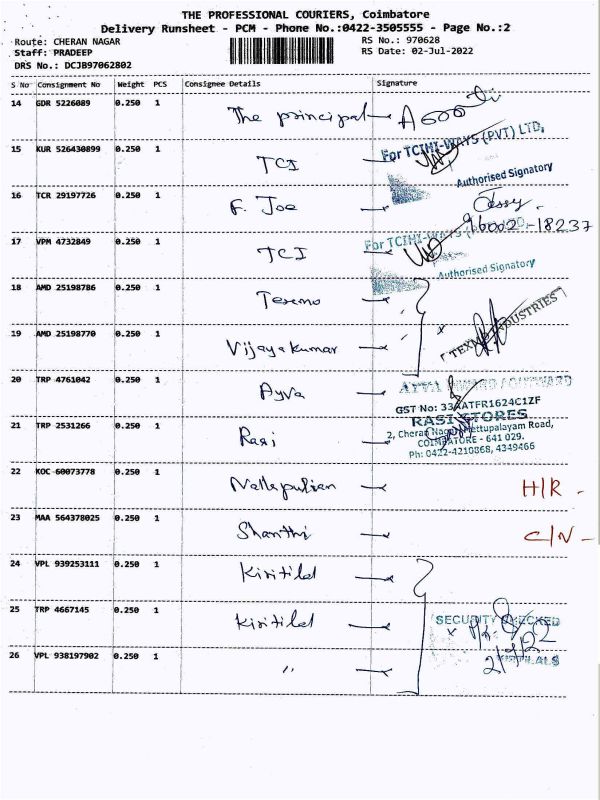 THE PROFESSIONAL COURIERS, Coimbatore
Delivery Runsheet - PCM - Phone No.:0422-3505555 - Page No.:2
Route: CHERAN NAGAR
RS No.: 970628
Staff: PRADEEP
RS Date: 02-Jul-2022
DRS No.: DCJB97062802
S No Consignment No Weight PCS Consignee Details Signature
14 GDR 5226089 0.250 1 The principal
15 KUR 526430899 0.250 1 TCI For TCIHI-WAYS (PVT) LTD,
Authorised Signatory
16 TCR 29197726 0.250 1 F. Joe Jessy
96002-18237
17 VPM 4732849 0.250 1 TCI For TCIHI-WAYS
Authorised Signatory
18 AMD 25198786 0.250 1
19 AMD 25198770 0.250 1 Vijayakumar TEXMO INDUSTRIES
20 TRP 4761042 0.250 1 Ayva
GST No: 33AATFR1624C1ZF
21 TRP 2531266 0.250 1 Rasi RASI STORES
2, Cheran Nagar, Mettupalayam Road,
COIMBATORE - 641 029.
Ph: 0422-4210868, 4349466
22 KOC 60073778 0.250 1 H/R -
23 MAA 564378025 0.250 1 Shanthi C/N -
24 VPL 939253111 0.250 1 Kiritilal
25 TRP 4667145 0.250 1 Kiritilal SECURITY CHECKED
26 VPL 938197902 0.250 1 "